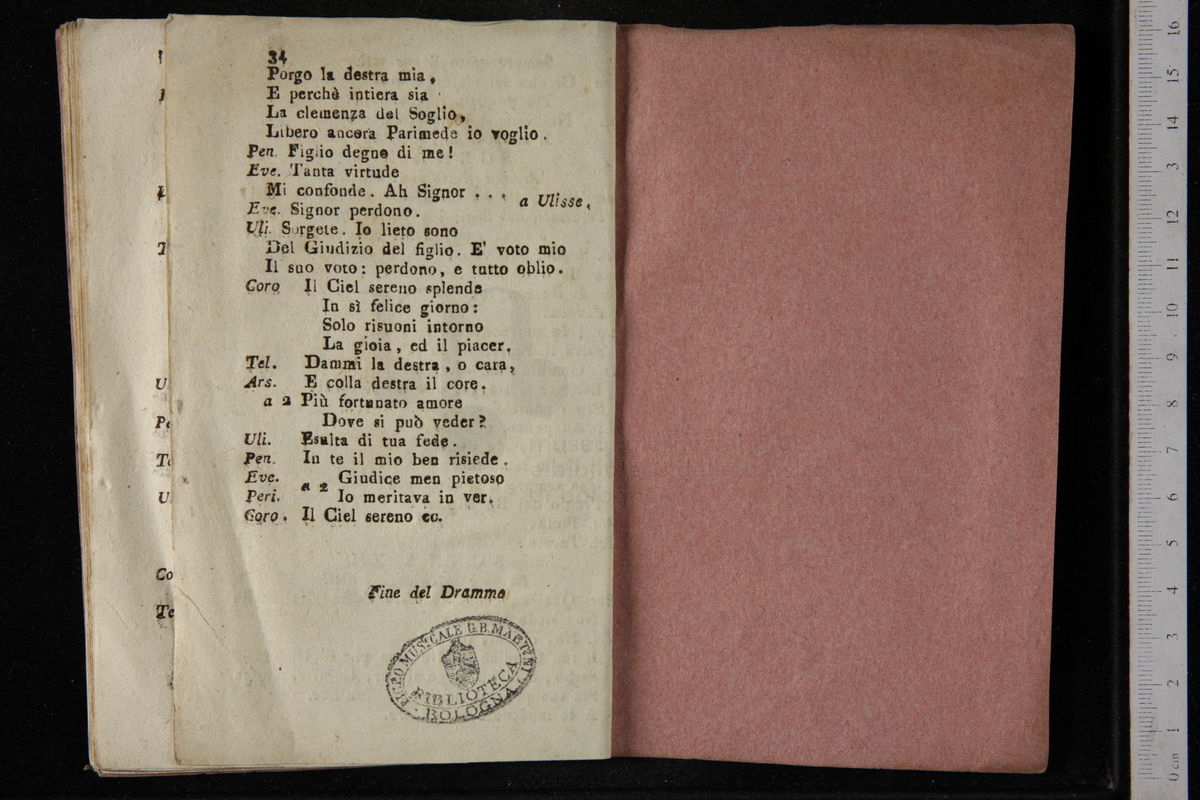 34
Porgo la destra mia,
E perchè intiera sia
La clemenza del Soglio,
Libero ancora Parimede io voglio.
Pen. Figlio degno di me!
Eve. Tanta virtude
Mi confonde. Ah Signor . . .
a Ulisse,
Eve. Signor perdono.
Uli. Sorgete. Io lieto sono
Del Giudizio del figlio. E' voto mio
Il suo voto: perdono, e tutto oblio.
Coro Il Ciel sereno splende
In sì felice giorno:
Solo risuoni intorno
La gioia, ed il piacer.
Tel. Dammi la destra, o cara,
Ars. E colla destra il core.
a 2 Più fortunato amore
Dove si può veder?
Uli. Esulta di tua fede.
Pen. In te il mio ben risiede.
Eve. a 2 Giudice men pietoso
Peri. Io meritava in ver.
Coro. Il Ciel sereno ec.
Fine del Dramma
LICEO MUSICALE G.B. MARTINI
BIBLIOTECA
BOLOGNA
U
Pe
Te
U
Co
Te
0 cm 1 2 3 4 5 6 7 8 9 10 11 12 13 14 15 16